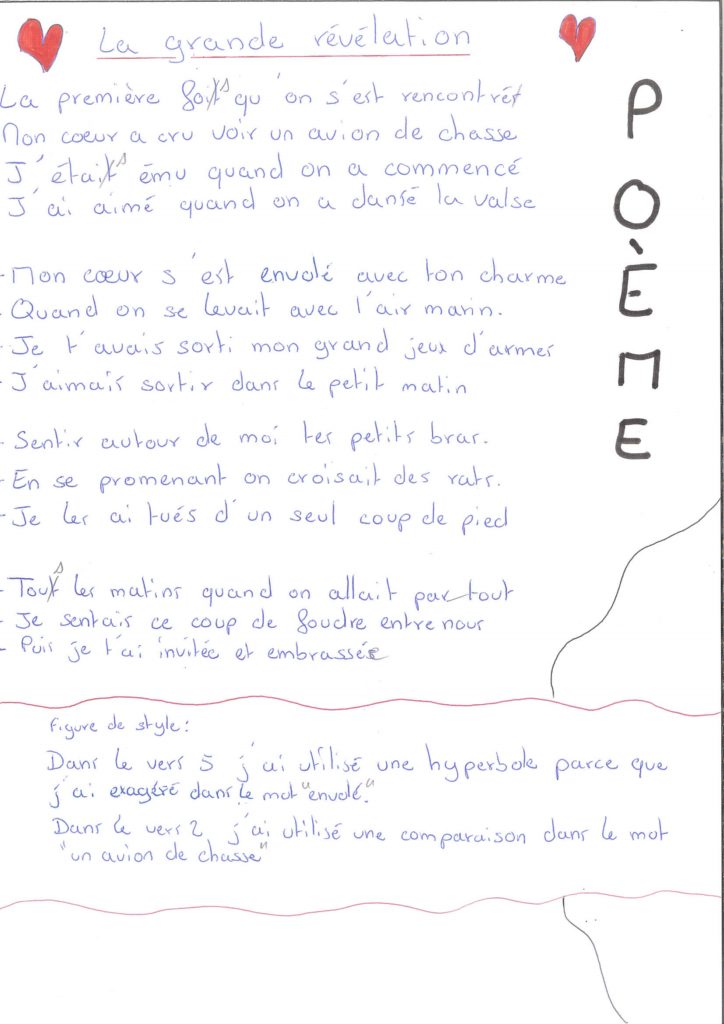 La grande révélation
La première fois qu'on s'est rencontrés
Mon coeur a cru voir un avion de chasse
J'étais ému quand on a commencé
J'ai aimé quand on a dansé la valse
- Mon cœur s'est envolé avec ton charme
- Quand on se levait avec l'air marin.
- Je t'avais sorti mon grand jeux d'armes
- J'aimais sortir dans le petit matin
- Sentir autour de moi tes petits bras.
- En se promenant on croisait des rats.
- Je les ai tués d'un seul coup de pied
- Tous les matins quand on allait partout
- Je sentais ce coup de foudre entre nous
- Puis je t'ai invitée et embrassée
POÈME
Figure de style:
Dans le vers 5 j'ai utilisé une hyperbole parce que
j'ai exagéré dans le mot "envolé."
Dans le vers 2 j'ai utilisé une comparaison dans le mot
"un avion de chasse"